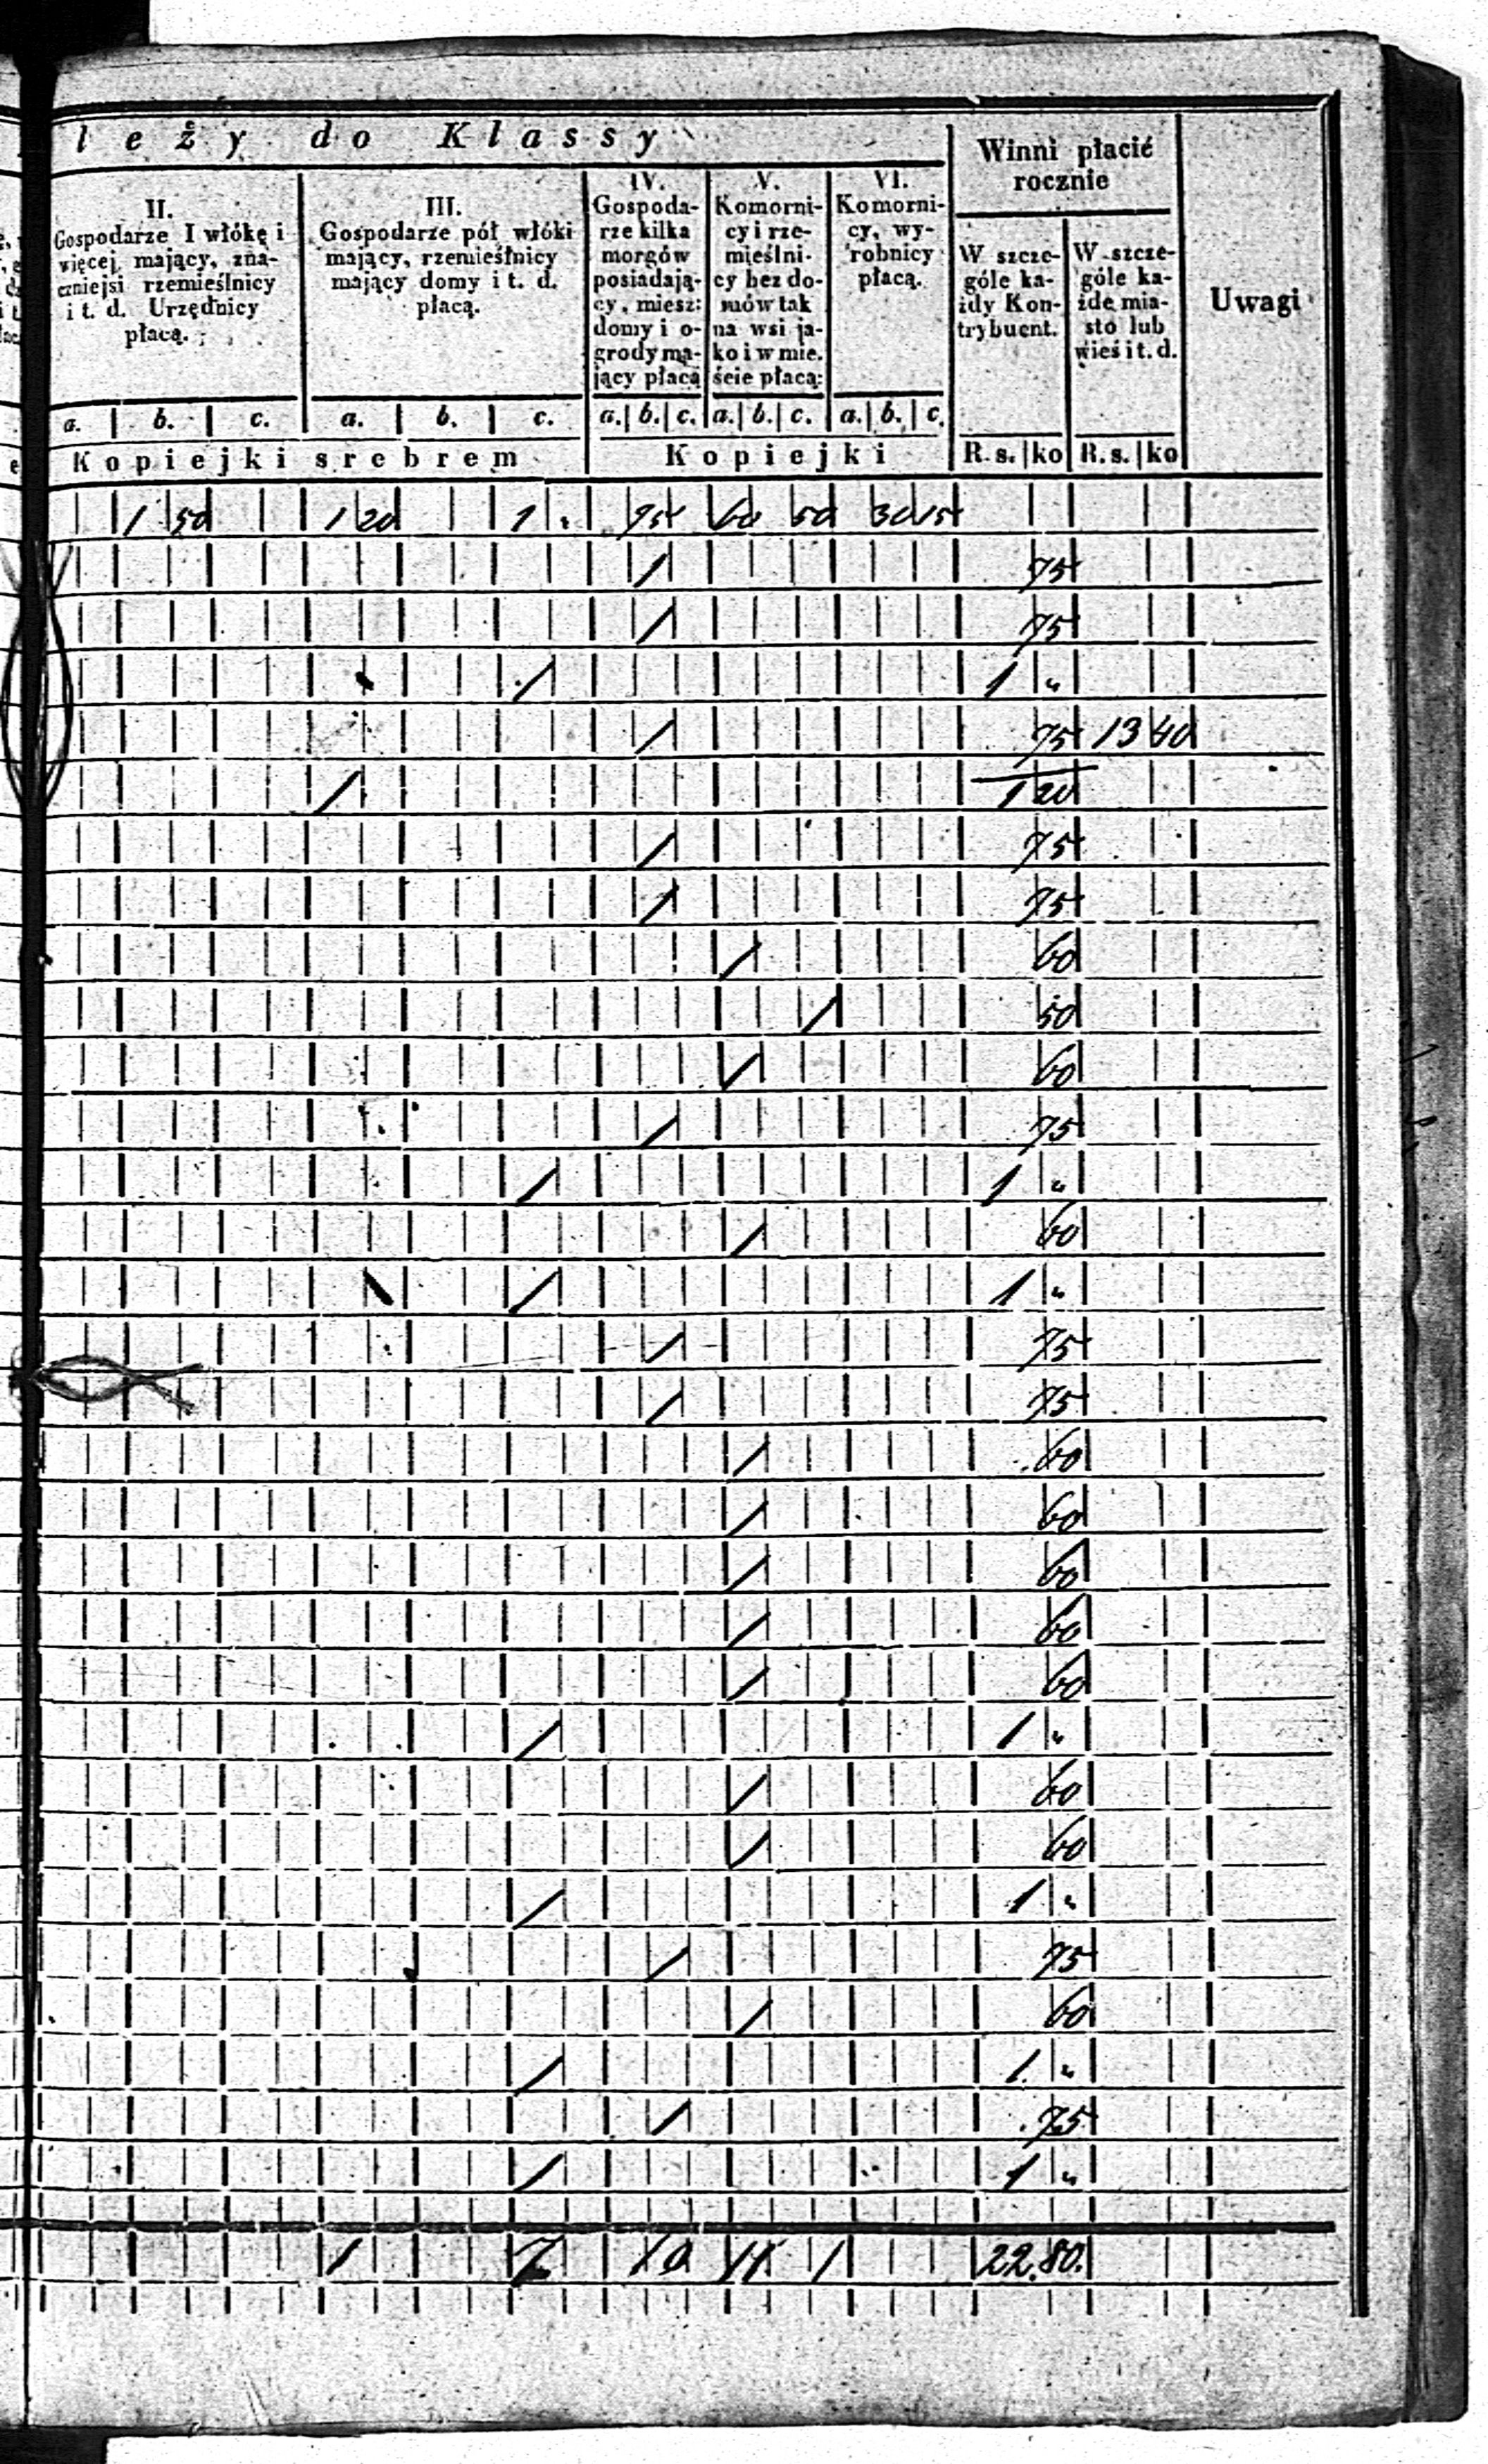 leży do Klassy
Winni płacić rocznie
II.
Gospodarze I włókę i
więcej mający, zna-
czniejsi rzemieślnicy
i t. d. Urzędnicy
płacą.
III.
Gospodarze pół włóki
mający, rzemieślnicy
mający domy i t. d.
płacą.
IV.
Gospoda-
rze kilka
morgów
posiadają-
cy, miesz:
domy i o-
grody ma-
jący płacą
V.
Komorni-
cy i rze-
mieślni-
cy bez do-
mów tak
na wsi ja-
ko i w mie.
ście płacą:
VI.
Komorni-
cy, wy-
robnicy
płacą.
W szcze-
góle ka-
żdy Kon-
trybuent.
W szcze-
góle ka-
żde mia-
sto lub
wieś i t. d.
Uwagi
a. b. c. a. b. c. a. b. c. a. b. c. a. b. c.
Kopiejki srebrem Kopiejki R. s. ko R. s. ko
1 50 1 20 1 " 75 60 50 30 15
/ 75
/ 75
/ 1 "
/ 75 13 40
/ 1 20
/ 75
/ 75
/ 60
/ 50
/ 60
/ 75
/ 1 "
/ 60
/ 1 "
/ 75
/ 75
/ 60
/ 60
/ 60
/ 60
/ 60
/ 1 "
/ 60
/ 60
/ 1 "
/ 75
/ 60
/ 1 "
/ 75
/ 1 "
1 7 10 11 1 22 80.